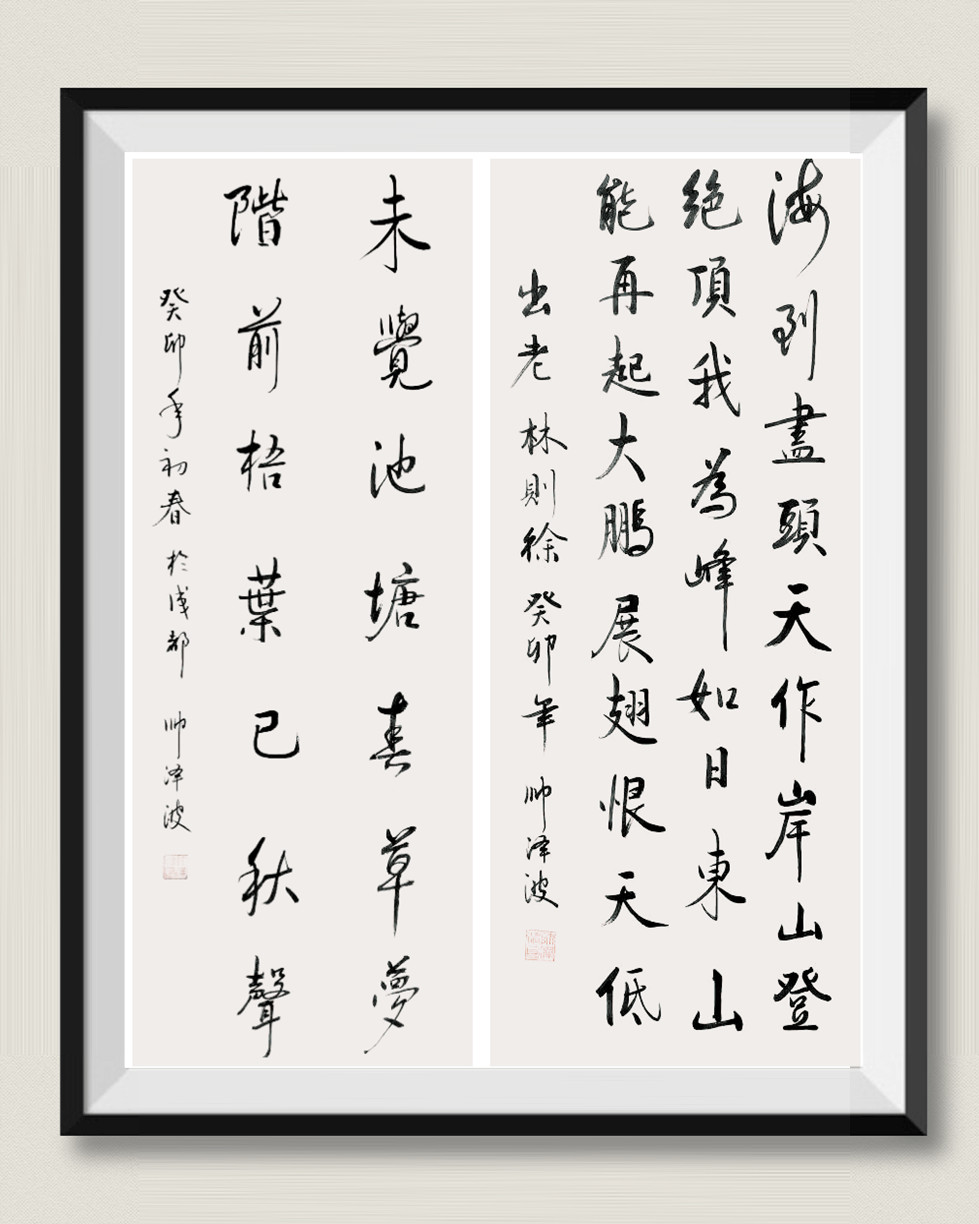 海到盡頭天作岸山登
絶頂我為峰如日東山
能再起大鵬展翅恨天低
出老 林則徐 癸卯年 帅泽波
未覺池塘春草夢
階前梧葉已秋聲
癸卯年初春 於成都 帅泽波